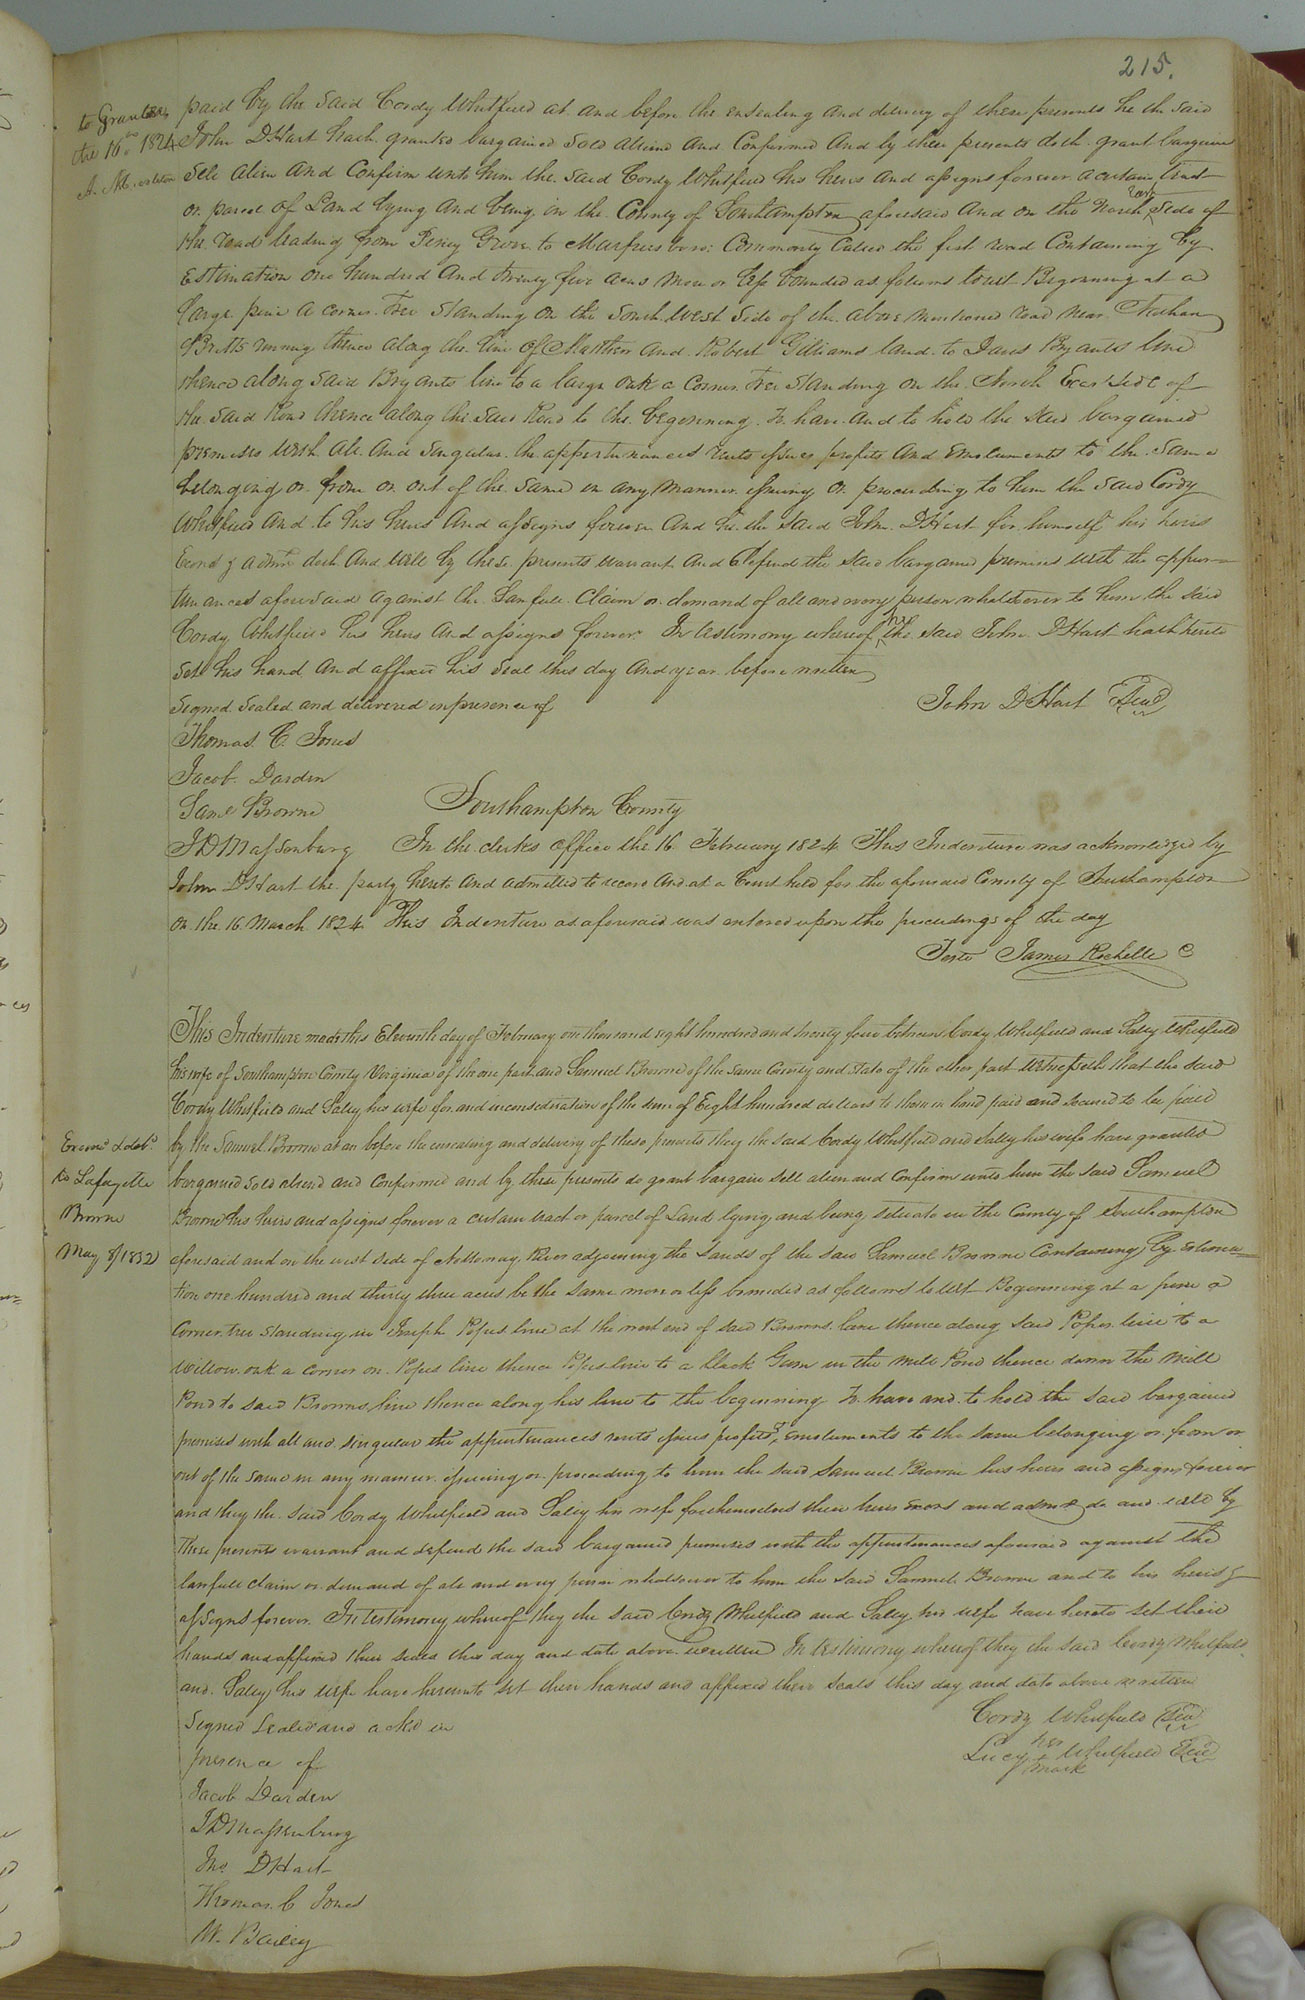 215.
to Grantor
the 16th 1824
paid by the said Cordy Whitfield at and before the ensealing and delivery of these presents he the said
John D Hart hath granted bargained sold aliend and Confirmed And by these presents doth grant bargain
sell alien and Confirm unto him the said Cordy Whitfield his heirs and assigns forever a certain tract
or parcel of Land lying and being in the County of Southampton aforesaid and on the North East Side of
the road leading from Piney Grove to Murfrees boro: Commonly Called the first road Containing by
Estimation one hundred And twenty five acres more or less bounded as follows towit Beginning at a
large pine a corner Tree Standing on the South West Side of the above mentioned road near Nathan
Britts runing thence along the line of Matthew and Robert Gilliams land to Davis Bryants line
thence along said Bryants line to a large oak a Corner Tree Standing on the North East side of
the said Road thence along the said Road to the beginning To have and to hold the said bargained
premises with all and singular the appurtenances rents issues profits and emoluments to the same
belonging or from or out of the same in any manner issuing or proceeding to him the said Cordy
Whitfield and to his heirs and assigns forever And he the said John D Hart for himself his heirs
Exors & admrs doth and will by these presents warrant and Defend the said bargained premises with the appur=
tenances aforesaid against the Lawfull Claim or demand of all and every person whatsoever to him the said
Cordy Whitfield his heirs and assigns forever In testimony whereof he the said John D Hart hath hereto
set his hand and affixed his seal this day and year before written
Signed Sealed and delivered in presence of John D Hart Seal
Thomas C. Jones
Jacob Darden
Saml Browne Southampton County
J D Massenburg In the clerks office the 16 February 1824 This Indenture was acknowledged by
John D Hart the party hereto and admitted to record And at a Court held for the aforesaid County of Southampton
on the 16 March 1824 This Indenture as aforesaid was entered upon the proceedings of the day
Teste James Rochelle C
This Indenture made this Eleventh day of February one thousand eight hundred and twenty four between Cordy Whitfield and Sally Whitfield
his wife of Southampton County Virginia of the one part and Samuel Browne of the same County and State of the other part Witnesseth that the said
Cordy Whitfield and Sally his wife for and in consideration of the sum of Eight hundred dollars to them in hand paid and secured to be paid
by the Samuel Browne at or before the ensealing and delivery of these presents they the said Cordy Whitfield and Sally his wife have granted
bargained sold aliend and Confirmed and by these presents do grant bargain sell alien and Confirm unto him the said Samuel
Browne his heirs and assigns forever a certain tract or parcel of Land lying and being situate in the County of Southampton
aforesaid and on the west side of Nottoway River adjoining the Lands of the said Samuel Browne Containing by estima=
tion one hundred and thirty three acres be the same more or less bounded as follows towit Beginning at a pine a
Corner tree standing in Joseph Popes line at the west end of said Browns lane thence along said Popes line to a
willow oak a corner on Popes line thence Popes line to a black Gum in the mill Pond thence down the mill
Pond to said Browns line thence along his line to the beginning To have and to hold the said bargained
premises with all and singular the appurtenances rents issues profits & emoluments to the same belonging or from or
out of the same in any manner issuing or proceeding to him the said Samuel Browne his heirs and assigns forever
and they the said Cordy Whitfield and Sally his wife for themselves their heirs exors and admrs do and will by
these presents warrant and defend the said bargained premises with the appurtenances aforesaid against the
lawfull claim or demand of all and every person whatsoever to him the said Samuel Browne and to his heirs &
assigns forever. In testimony whereof they the said Cordy Whitfield and Sally his wife have hereto set their
hands and affixed their seals this day and date above written In testimony whereof they the said Cordy Whitfield
and Sally his wife have hereunto set their hands and affixed their seals this day and date above written
Signed Sealed and ackd in Cordy Whitfield Seal
presence of Lucy her + mark Whitfield Seal
Jacob Darden
J D Massenburg
Jno D Hart
Thomas C Jones
W. Bailey
Examd & deld
to Lafayette
Browne
May 8/1832